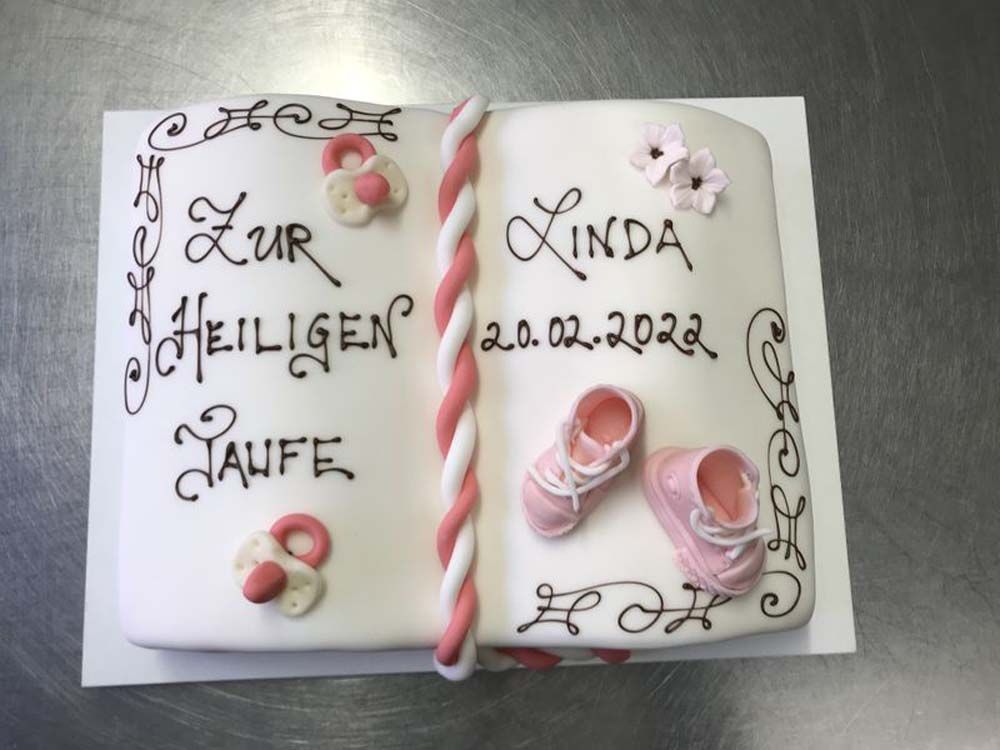 ZUR
HEILIGEN
TAUFE
LINDA
20.02.2022